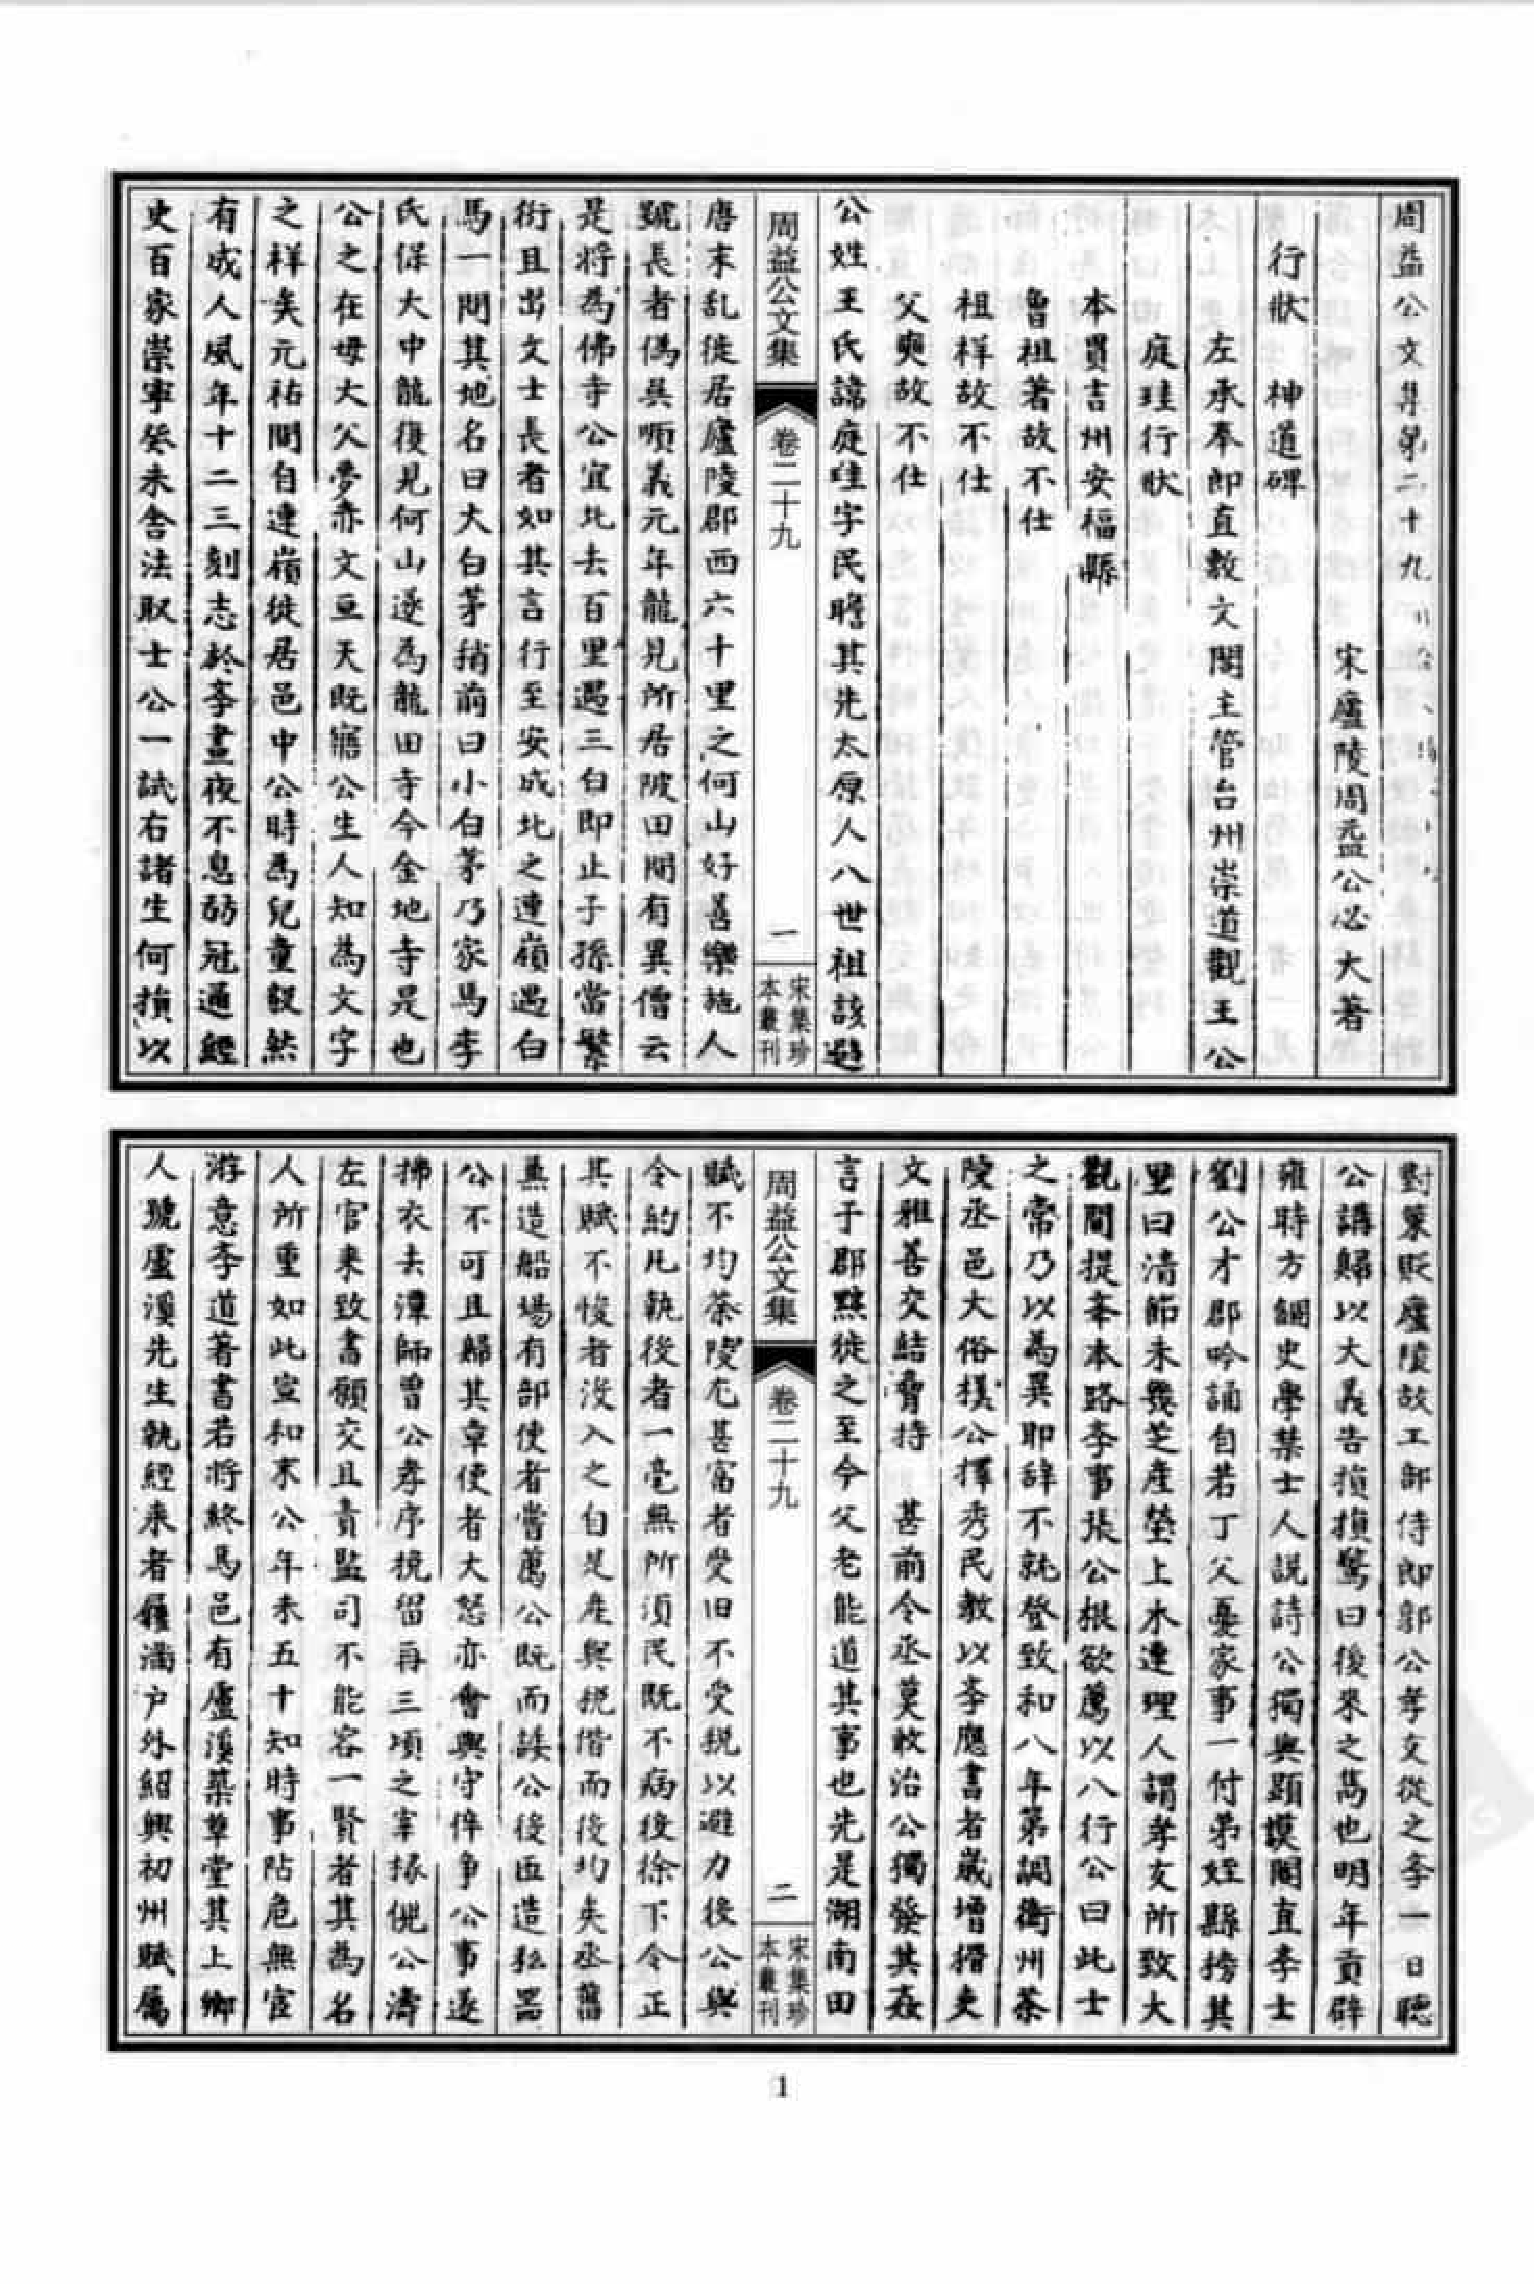 周益公文集第二十九
宋廬陵周益公必大著
行狀　神道碑
左承奉郎直敷文閣主管台州崇道觀王公
庭珪行狀
本貫吉州安福縣
曾祖著故不仕
祖祥故不仕
父奭故不仕
公姓王氏諱庭珪字民瞻其先太原人八世祖該避
周益公文集
卷二十九
一
宋集珍
本叢刊
唐末乱徙居廬陵郡西六十里之何山好善樂施人
號長者偽吳順義元年龍見所居陂田間有異僧云
是將為佛寺公宜北去百里遇三白即止子孫當繁
衍且出文士長者如其言行至安成北之連嶺遇白
馬一問其地名曰大白茅稍前曰小白茅乃家焉李
氏保大中龍復見何山遂為龍田寺今金地寺是也
公之在母大父夢赤文亘天既寤公生人知為文字
之祥矣元祐間自連嶺徙居邑中公時為兒童毅然
有成人風年十二三刻志於斈晝夜不息弱冠通經
史百家崇寧癸未舍法取士公一試右諸生何損以
對策貶廬陵故工部侍郎郭公孝友從之斈一日聽
公講歸以大義告損損驚曰後來之雋也明年貢辟
雍時方錮史學禁士人說詩公獨與顯謨閣直斈士
劉公才邵吟誦自若丁父憂家事一付弟姪縣榜其
里曰清節未幾芝產塋上木連理人謂孝友所致大
觀間提斈本路斈事張公根欲薦以八行公曰此士
之常乃以為異耶辭不就登政和八年第調衡州茶
陵丞邑大俗樸公擇秀民教以斈應書者歲增猾吏
文雅善交結脅持　甚前令丞莫敢治公獨發其姦
言于郡黥徙之至今父老能道其事也先是湖南田
周益公文集
卷二十九
二
宋集珍
本叢刊
賦不均茶陵尤甚富者受旧不受税以避力後公與
令約凡執後者一毫無所須民既不病後徐下令正
其賦不悛者沒入之自是產與税偕而後均矣丞舊
兼造船場有部使者嘗薦公既而諉公後匠造私器
公不可且歸其章使者大怒亦會與守倅争公事遂
拂衣去潭師曽公孝序挽留再三頃之宰掾侂公濤
左官来致書願交且責監司不能容一賢者其為名
人所重如此宣和末公年未五十知時事阽危無宦
游意斈道著書若將終焉邑有盧溪築草堂其上鄉
人號盧溪先生執經来者屨滿户外紹興初州賦屬